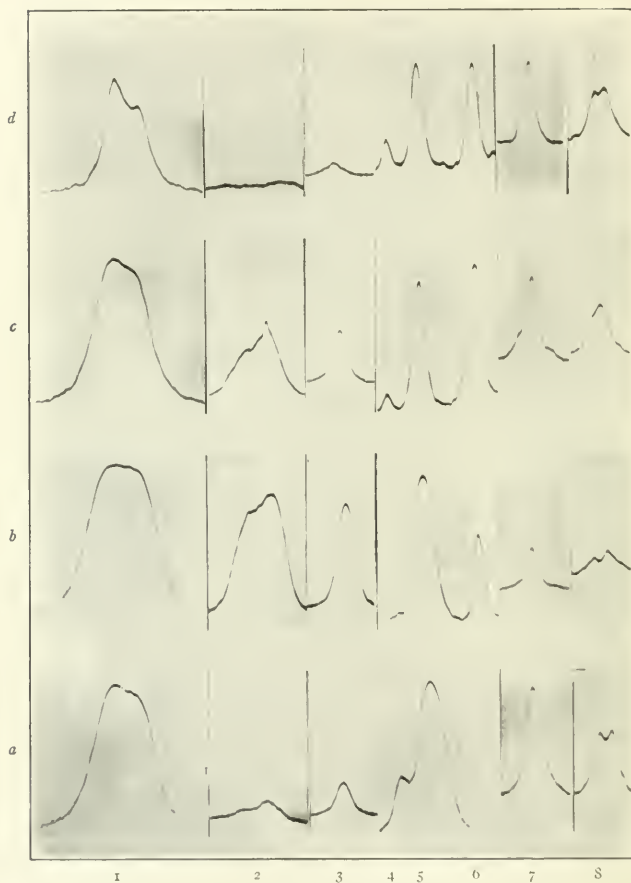 d
c
b
a
1 2 3 4 5 6 7 8